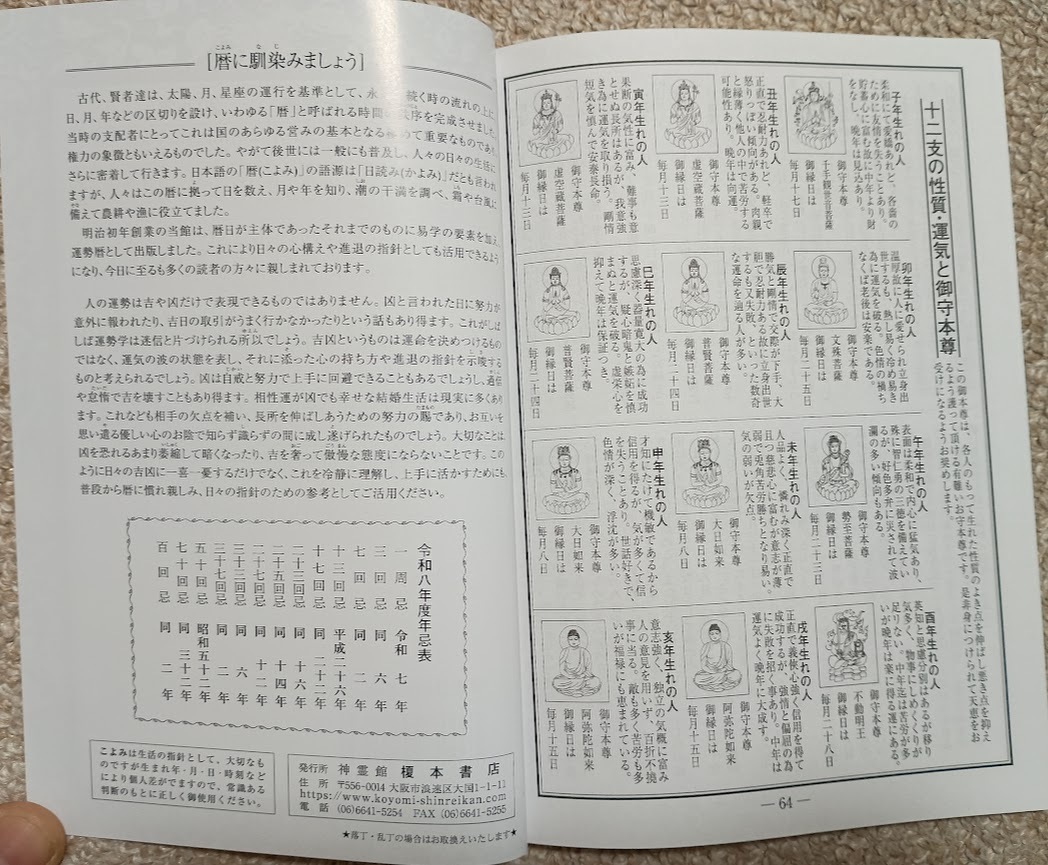 [暦に馴染みましょう]
古代、賢者達は、太陽、月、星座の運行を基準として、永
続く時の流れの上に
日、月、年などの区切りを設け、いわゆる「暦」と呼ばれる時間
序を完成させました。
当時の支配者にとってこれは国のあらゆる営みの基本となる
めて重要なものであり、
権力の象徴ともいえるものでした。やがて後世には一般にも普及し、人々の日々の生活に
さらに密着して行きます。日本語の「暦(こよみ)」の語源は「日読み(かよみ)」だとも言われ
ますが、人々はこの暦に拠って日を数え、月や年を知り、潮の干満を調べ、霜や台風に
備えて農耕や漁に役立てました。
明治初年創業の当館は、暦日が主体であったそれまでのものに易学の要素を加え、
運勢暦として出版しました。これにより日々の心構えや進退の指針としても活用できるよう
になり、今日に至るも多くの読者の方々に親しまれております。
人の運勢は吉や凶だけで表現できるものではありません。凶と言われた日に努力が
意外に報われたり、吉日の取引がうまく行かなかったりという話もあり得ます。これがしば
しば運勢学は迷信と片づけられる所以でしょう。吉凶というものは運命を決めつけるもの
ではなく、運気の波の状態を表し、それに添った心の持ち方や進退の指針を示唆する
ものと考えられるでしょう。凶は自戒と努力で上手に回避できることもあるでしょうし、過信
や怠惰で吉を壊すこともあり得ます。相性運が凶でも幸せな結婚生活は現実に多くあり
ます。これなども相手の欠点を補い、長所を伸ばしあうための努力の賜であり、お互いを
思い遣る優しい心のお陰で知らず識らずの間に成し遂げられたものでしょう。大切なことは
凶を恐れるあまり萎縮して暗くなったり、吉を奢って傲慢な態度にならないことです。この
ように日々の吉凶に一喜一憂するだけでなく、これを冷静に理解し、上手に活かすためにも
普段から暦に慣れ親しみ、日々の指針のための参考としてご活用ください。
令和八年度年忌表
一周忌 令和七年
三回忌 同六年
七回忌 同二年
十三回忌 平成二十六年
十七回忌 同二十二年
二十三回忌 同十六年
二十五回忌 同十四年
二十七回忌 同十二年
三十三回忌 同六年
三十七回忌 同二年
五十回忌 昭和五十二年
七十回忌 同三十二年
百回忌 同二年
こよみは生活の指針として、大切なも
のですが生まれ年・月・日・時刻など
により個人差がでますので、常識ある
判断のもとに正しく御使用ください。
発行所 神霊館 榎本書店
住所 〒556-0014 大阪市浪速区大国1-1-11
https://www.koyomi-shinreikan.com
電話 (06)6641-5254 FAX (06)6641-5255
★落丁・乱丁の場合はお取換えいたします★
十二支の性質・運気と御守本尊
この御本尊は、各人のもって生れた性質のよき点を伸ばし悪き点を抑え
るよう護って頂ける有難いお守本尊です。是非身につけられて天恵をお
受けになるようお奨めします。
子年生れの人
柔和にて愛嬌あれど、吝嗇の
ために友情を失うことあり。
貯蓄心に富む故に中年より財
をなし、晩年は見込あり。
御守本尊
千手観世音菩薩
御縁日は
毎月十七日
丑年生れの人
正直で忍耐力あれど、軽卒で
怒りっぽい傾向がある。肉親
と縁薄く他人の中で苦労する
可能性あり。晩年は向運。
御守本尊
虚空蔵菩薩
御縁日は
毎月十三日
寅年生れの人
果断の気性に富み、難事も意
とせぬ長所はあるが、我意強
き為に運気を取り損う。剛情
短気を慎んで安泰長命。
御守本尊
虚空蔵菩薩
御縁日は
毎月十三日
卯年生れの人
温厚故に人に愛せられ立身出
世するも、熱し易く冷め易き
為に運気を破る。色情の禍ち
なくば老後は安楽である。
御守本尊
文殊菩薩
御縁日は
毎月二十五日
辰年生れの人
勝気と剛情で交際が下手、大
胆で忍耐力ある故に立身出世
するも又失敗、といった数奇
な運命を辿る人が多い。
御守本尊
普賢菩薩
御縁日は
毎月二十四日
巳年生れの人
思慮深く器量寛大の為に成功
するが、疑心暗鬼と嫉妬を慎
まぬと運気を破る。虚栄心を
抑えて晩年は保証つき。
御守本尊
普賢菩薩
御縁日は
毎月二十四日
午年生れの人
表面は柔和で内心に猛気あり、
殊に智仁勇の三徳を備えてい
るが、好色多弁に災されて波
瀾の多い傾向もある。
御守本尊
勢至菩薩
御縁日は
毎月二十三日
未年生れの人
人品よく、憐れみ深く正直で
且つ慈悲心に富むが意志が薄
弱で兎角苦労勝ちとなり易い。
気の弱いが欠点。
御守本尊
大日如来
御縁日は
毎月八日
申年生れの人
才知にたけて機敏であるから
信用を得るが、気が多くて信
を失うことあり。世話好きで、
色情が深く、浮沈が多い。
御守本尊
大日如来
御縁日は
毎月八日
酉年生れの人
英知と思慮分別はあるが移り
気多く、物事にしめくくりが
足りない。中年迄は苦労が多
いが晩年は楽に得る運にある。
御守本尊
不動明王
御縁日は
毎月二十八日
戌年生れの人
正直で義侠心強く信用を得て
成功するが、強情と偏屈の為
に失敗を招く事あり。中年は
運気よく晩年に大成す。
御守本尊
阿弥陀如来
御縁日は
毎月十五日
亥年生れの人
意志強く、独立の気概に富み
人の意見を用いず、百折不撓
事に当る。敵も多く苦労も多
いが福禄にも恵まれている。
御守本尊
阿弥陀如来
御縁日は
毎月十五日
— 64 —